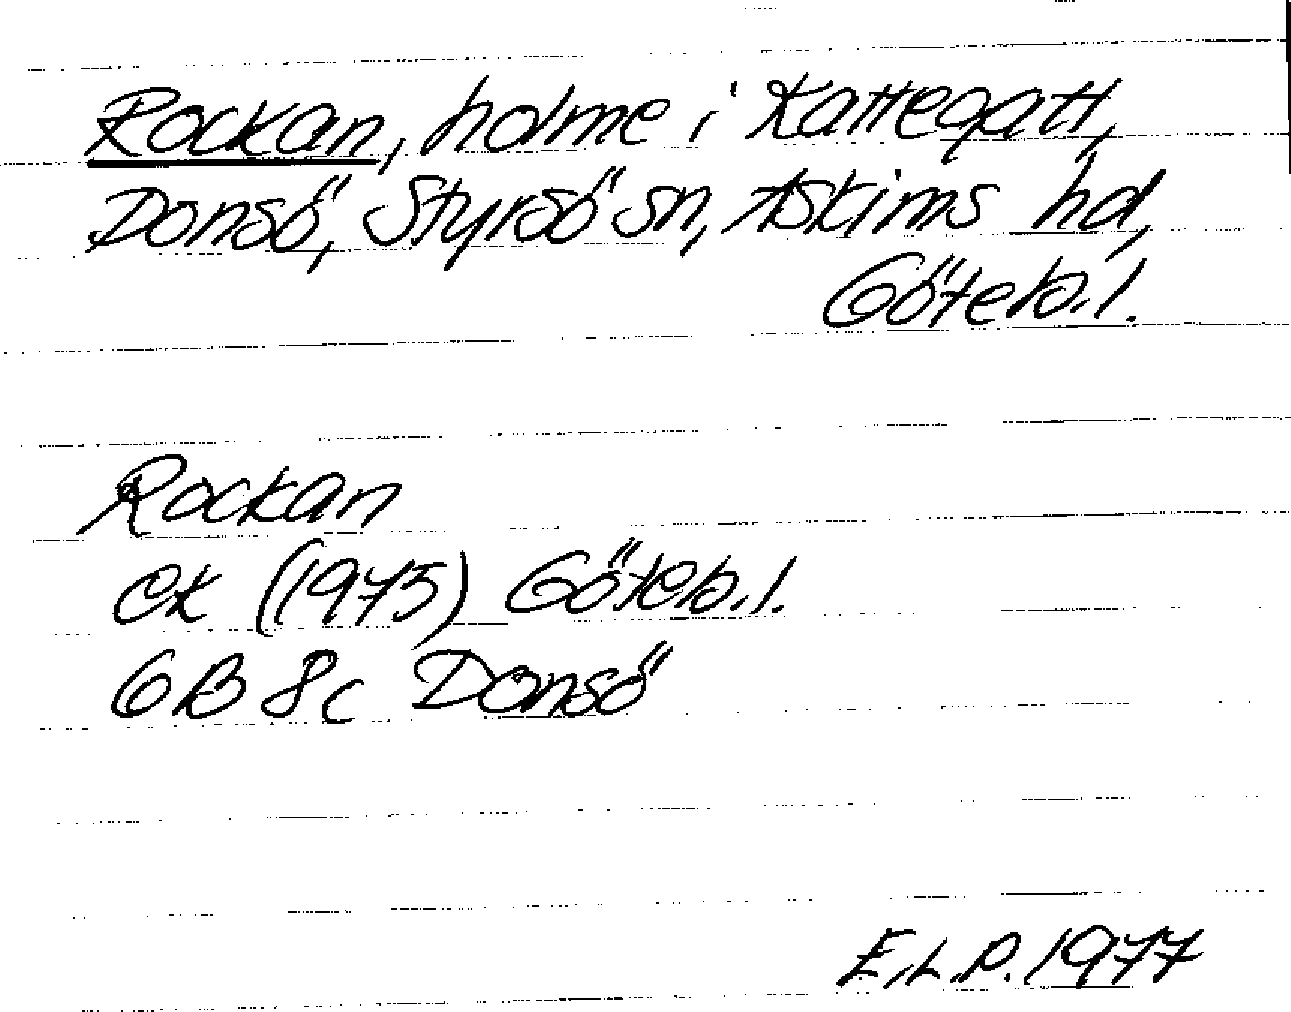 Rockan, holme i Kattegatt,
Donsö, Styrsö sn, Askims hd,
Göteb.l.
Rockan
ek (1975) Göteb.l.
6B 8c Donsö
E.L.P. 1977